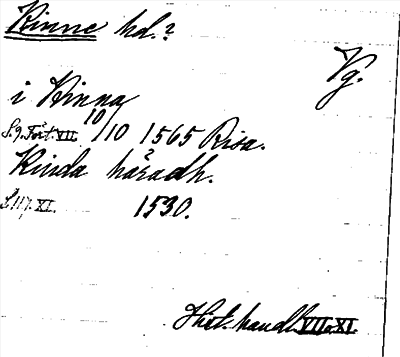 Kinne hd.?
Vg.
i Kinna
S. 9. Fört. VII. 10/10 1565 Risa.
Kinda häradh.
S. 117. XI. 1530.
Hist. handl. VII o. XI.